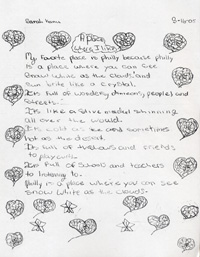 A place
where I live
My favorite place is philly because philly
is a place where you can see
snow white as the clouds and
sun white like a crystal.
It's full of wonderful memory, people and
streets.
It's like a star shinning
all over the world.
It's cold as ice and sometimes
hot as the desert.
Its full of and friends
to play with.
Its full of school and teachers
to listening to.
Philly is a place where you can see
snow white as the clouds.